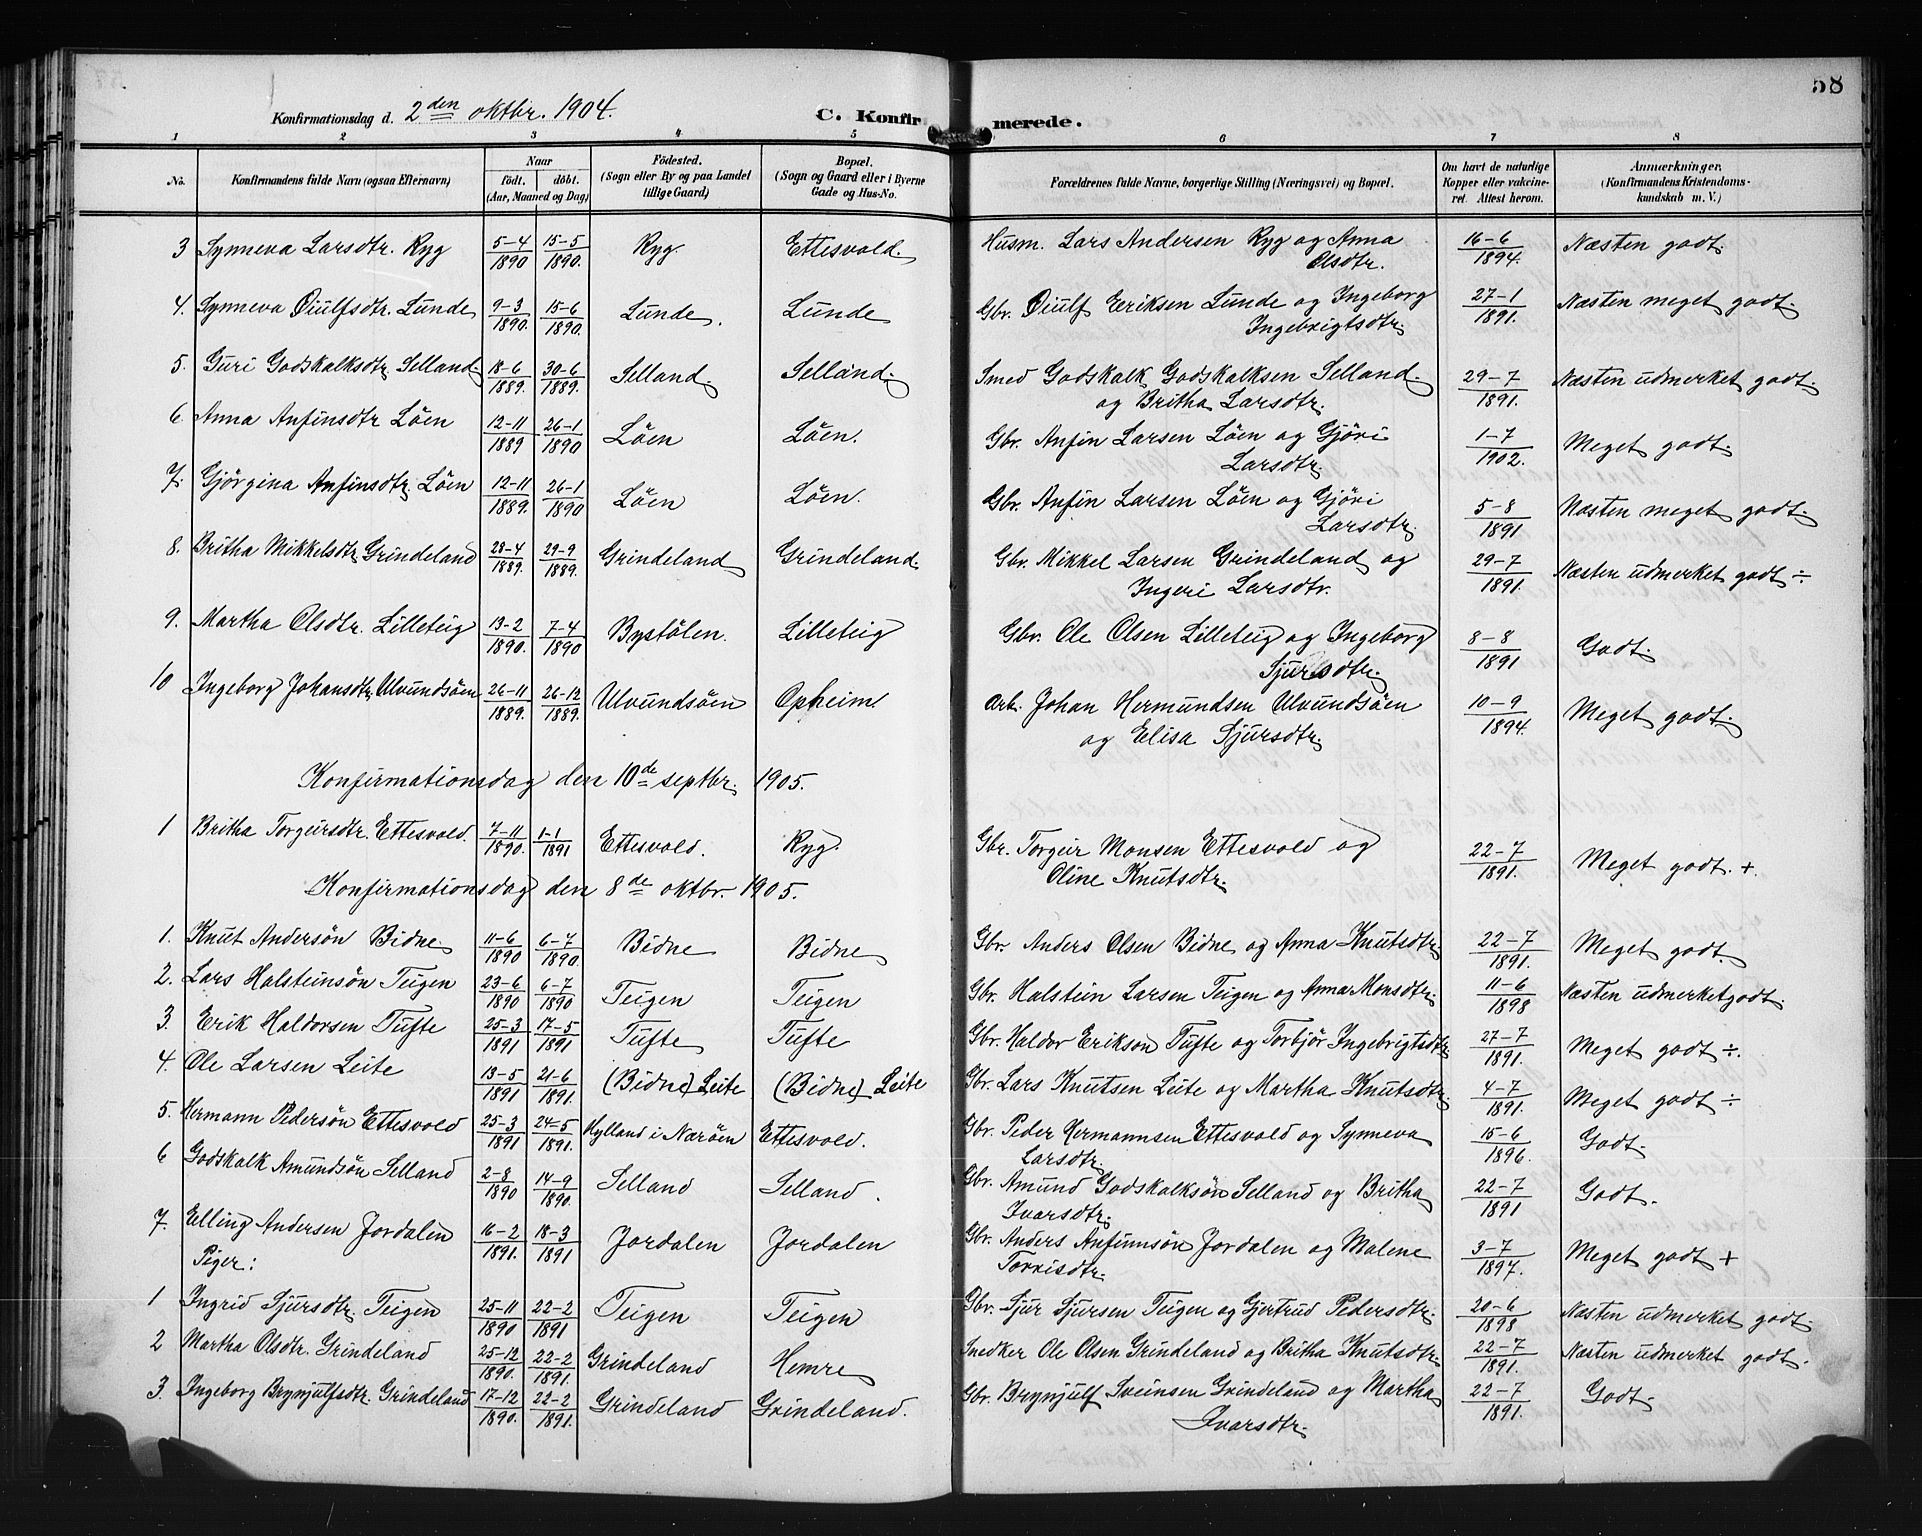 58
Konfirmationsdag d. 2den oktbr. 1904. C. Konfirmerede.
1 2 3 4 5 6 7 8
No. Konfirmandens fulde Navn (ogsaa Efternavn) Naar født. døbt. (Aar, Maaned og Dag) Födested. (Sogn eller By og paa Landet tillige Gaard) Bopæl. (Sogn og Gaard eller i Byerne Gade og Hus-No. Forældrenes fulde Navne, borgerlige Stilling (Næringsvei) og Bopæl. Om havt de naturlige Kopper eller vakcineret. Attest herom. Anmærkninger. (Konfirmandens Kristendomskundskab m. V.)
3 Synneva Larsdtr. Ryg 5-4 1890 15-5 1890. Ryg. Ettesvold. Husm. Lars Andersen Ryg og Anna Olsdtr. 16-6 1894. Næsten godt.
4. Synneva Öiulfsdtr. Lunde 9-3 1890. 15-6 1890. Lunde. Lunde Gbr. Öiulf Eeriksen Lunde og Ingeborg Ingebrigtsdtr. 27-1 1891. Næsten meget godt.
5. Guri Godskalksdtr. Selland. 18-6 1889. 30-6 1889. Selland. Selland. Smed Godskalk Godskalksen Selland og Britha Larsdtr. 29-7 1891. Næsten udmerket godt.
6 Anna Anfinsdtr Löen 12-11 1889 26-1 1890 Löen Löen. Gbr. Anfin Larsen Löen og Gjöri Larsdtr. 1-7 1902. Meget godt.
7. Gjörgina Anfinsdtr. Löen 12-11 1889. 26-1 1890 Löen Löen. Gbr. Anfin Larsen Löen og Gjöri Larsdtr. 5-8 1891 Næsten meget godt.
8. Britha Mikkelsdtr. Grindeland 28-4 1889. 29-9 1889. Grindeland Grindeland. Gbr. Mikkel Larsen Grindeland og Ingeri Larsdtr. 29-7 1891. Næsten udmerket godt ÷
9. Martha Olsdtr. Lilleteig 13-2 1890. 7-4 1890 Bystölen. Lilleteig Gbr. Ole Olsen Lilleteig og Ingeborg Sjursdtr. 8-8 1891 Godt.
10 Ingeborg Johansdtr. Ulvundsöen 26-11 1889. 26-12 1889. Ulvundsöen Opheim Arb. Johan Hermundsen Ulvundsöen og Elisa Sjursdtr. 10-9 1894. Meget godt.
Konfirmationsdag den 10de septbr. 1905.
1 Britha Torgeirsdtr. Ettesvold. 7-11 1890. 1-1 1891 Ettesvold. Ryg. Gbr. Torgeir Monsen Ettesvold og Oline Knutsdtr. 22-7 1891. Meget godt. +.
Konfirmationsdag den 8de oktbr. 1905.
1. Knut Andersön Bidne. 11-6 1890 6-7 1890. Bidne Bidne Gbr. Anders Olsen Bidne og Anna Knutsdtr. 22-7 1891. Meget godt.
2. Lars Halsteinsön Teigen 23-6 1890 6-7 1890 Teigen Teigen Gbr. Halstein Larsen Teigen og Anna Monsdtr. 11-6 1898 Næsten udmerket godt.
3. Erik Haldorsen Tufte 25-3 1891 17-5 1891 Tufte Tufte Gbr. Haldor Erikson Tufte og Torbjör Ingebrigtsdtr. 27-7 1891. Meget godt ÷.
4. Ole Larsen Leite 13-5 1891 21-6 1891. (Bidne) Leite (Bidne) Leite Gbr. Lars Knutsen Leite og Martha Knutsdtr. 4-7 1891. Meget godt ÷
5. Hermann Pedersön Ettesvold 25-3 1891 24-5 1891. Hylland i Næröen Ettesvold. Gbr. Peder Hermannsen Ettesvold og Synneva Larsdtr. 15-6 1896. Godt.
6 Godskalk Amundsön Selland 2-8 1890 14-9 1890. Selland Selland. Gbr. Amund Godskalksön Selland og Britha Ivarsdtr. 22-7 1891 Godt.
7. Elling Andersen Jordalen 16-2 1891. 18-3 1891 Jordalen Jordalen Gbr. Anders Anfinnsön Jordalen og Malene Torrisdtr. 3-7 1897. Meget godt +
Piger:
1 Ingrid Sjursdtr. Teigen 25-11 1890 22-2 1891 Teigen Teigen Gbr. Sjur Sjursen Teigen og Gjertrud Pedersdtr. 20-6 1898 Næsten udmerket godt.
2 Martha Olsdtr. Grindeland 25-12 1890. 22-2 1891. Grindeland Hemre Snedker Ole Olsen Grindeland og Britha Knutsdtr. 22-7 1891. Næsten udmerket godt.
3. Ingeborg Brynjulfsdtr. Grindeland 17-12 1890. 22-2 1891. Grindeland Grindeland. Gbr. Brynjulf Sveinsen Grindeland og Martha Ivarsdtr. 22-7 1891. Godt.